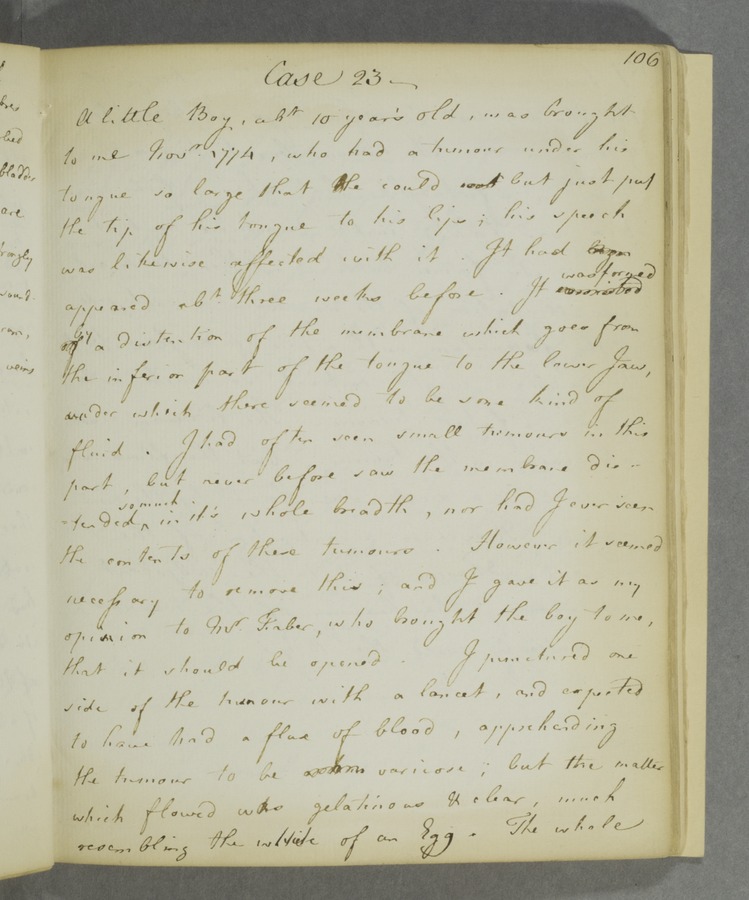 106
Case 23
A little Boy, abt 10 year's old, was brought
to me Novr. 1774, who had a tumour under his
tongue so large that he could but just put
the tip of his tongue to his lips; his speech
was likewise affected with it. It had
appeared abt three weeks before. It was formed
by a distention of the membrane which goes from
the inferior part of the tongue to the lower Jaw,
under which there seemed to be some kind of
fluid. I had often seen small tumours in this
part, but never before saw the membrane dis-
-tended so much in it's whole breadth, nor had I ever seen
the contents of these tumours. However it seemed
necessary to remove this; and I gave it as my
opinion to Mr. who brought the boy to me,
that it should be opened. I punctured one
side of the tumour with a lancet, and expected
to have had a flux of blood, apprehending
the tumour to be varicose; but the matter
which flowed was gelatinous & clear, much
resembling the white of an Egg. The whole